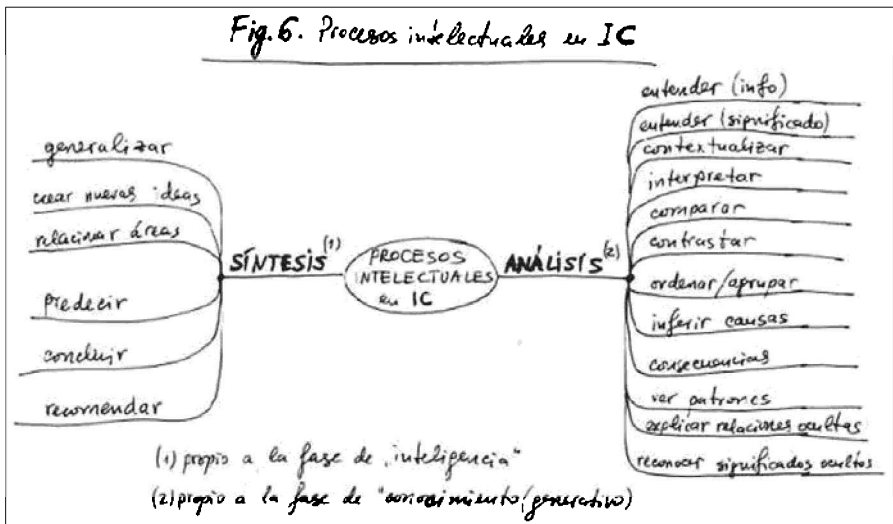 Fig. 6. Procesos intelectuales en IC
generalizar
crear nuevas ideas
relacionar áreas
predecir
concluir
recomendar
SÍNTESIS (1)
PROCESOS
INTELECTUALES
en IC
ANÁLISIS (2)
entender (info)
entender (significado)
contextualizar
interpretar
comparar
contrastar
ordenar/agrupar
inferir causas
consecuencias
ver patrones
explicar relaciones ocultas
reconocer significados ocultos
(1) propio a la fase de „inteligencia"
(2) propio a la fase de "conocimiento/generativo)